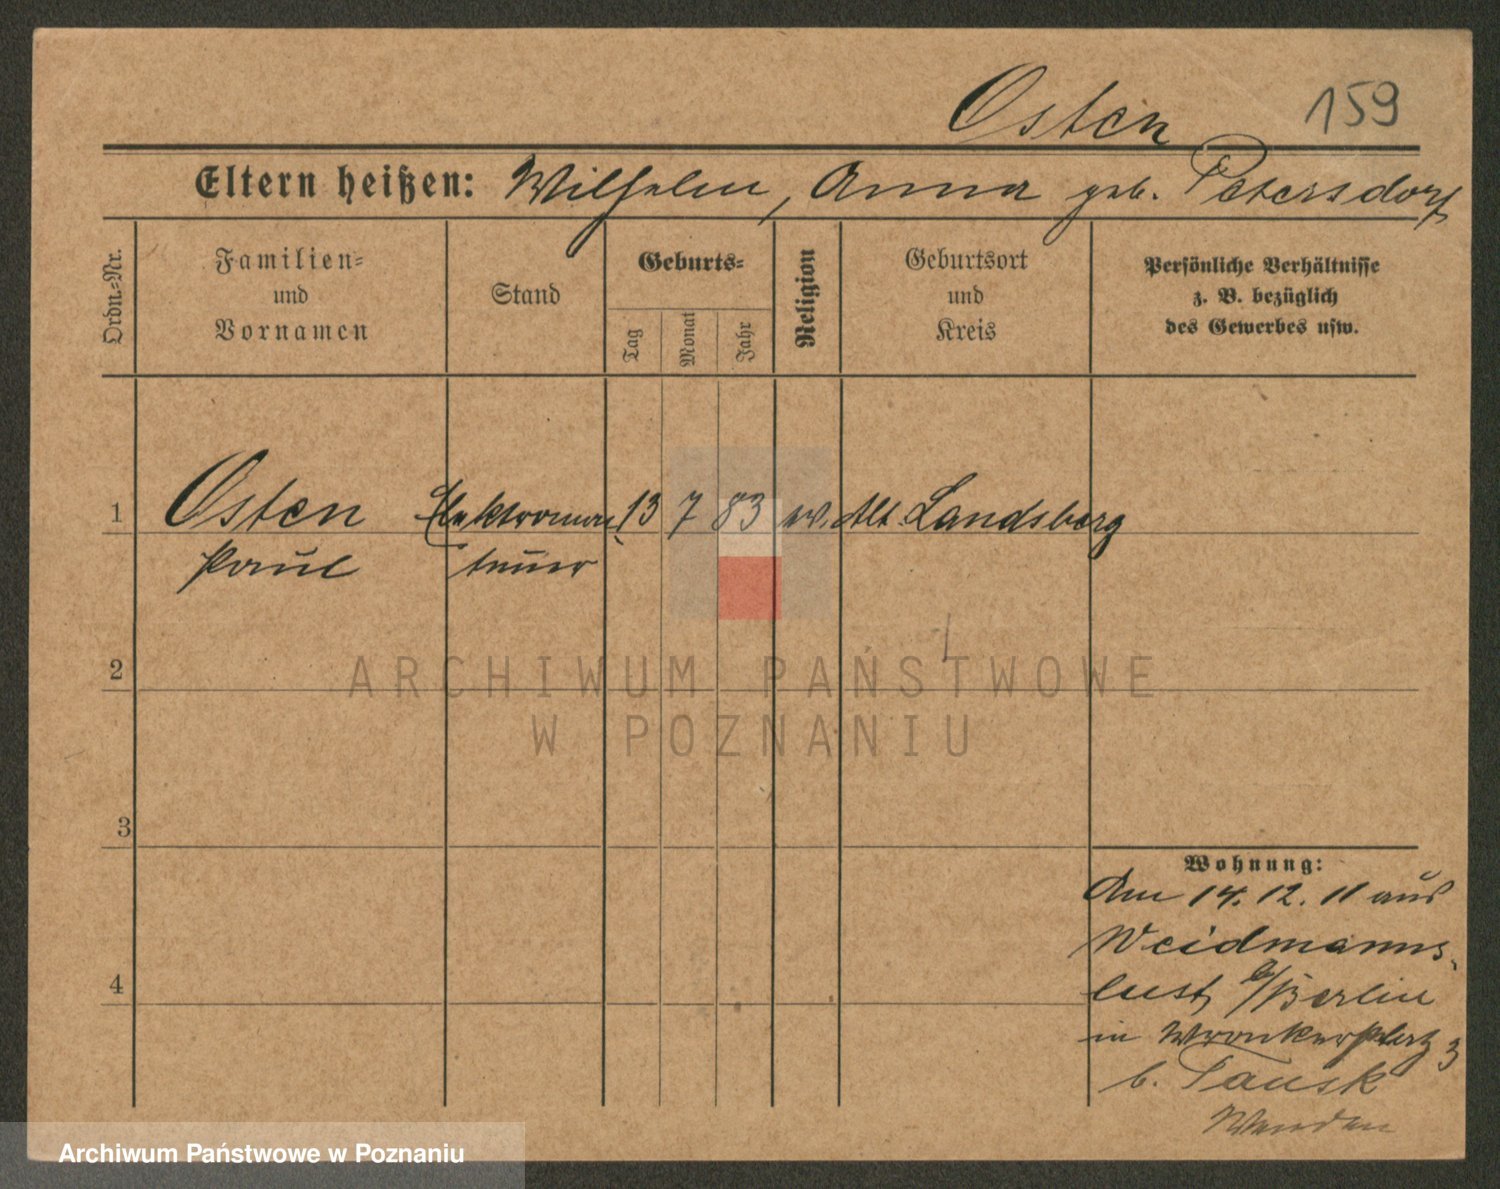 Osten 159
Eltern heißen: Wilhelm, Anna geb. Petersdorf
Ordn.-Nr.
Familien-
und
Vornamen
Stand
Geburts-
Tag
Monat
Jahr
Religion
Geburtsort
und
Kreis
Persönliche Verhältnisse
z. B. bezüglich
des Gewerbes usw.
1 Osten Elektromon- 13 7 83 ev. Alt Landsberg
Paul teur
2
3
4
Wohnung:
Am 14. 12. 11 aus
Weidmanns-
lust b/Berlin
in Wronkerplatz 3
b. Tausk
ARCHIWUM PAŃSTWOWE
W POZNANIU
Archiwum Państwowe w Poznaniu